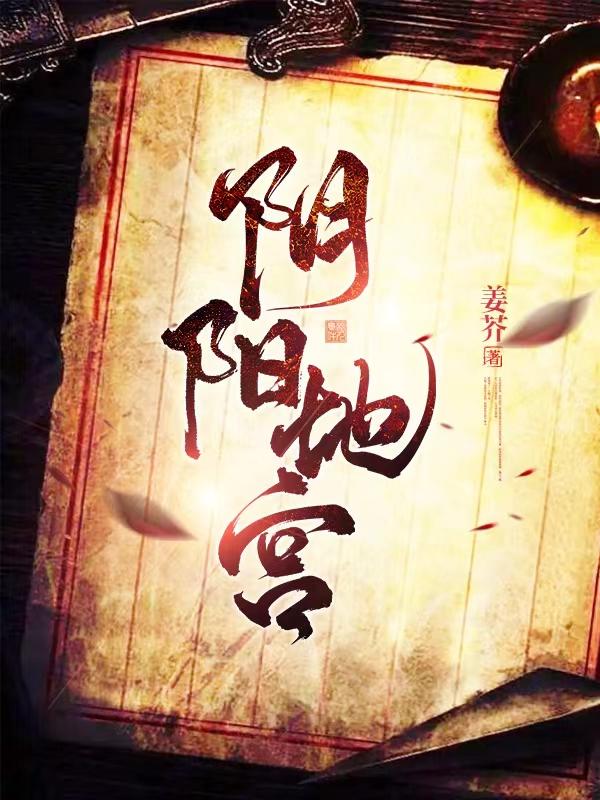 阴
阳地
宫
姜芥 著